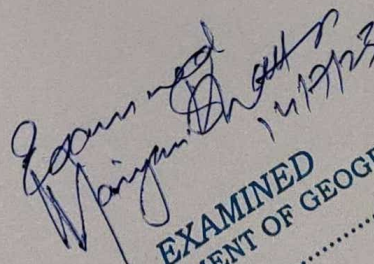 Examined
14/7/23
EXAMINED
MENT OF GEOG